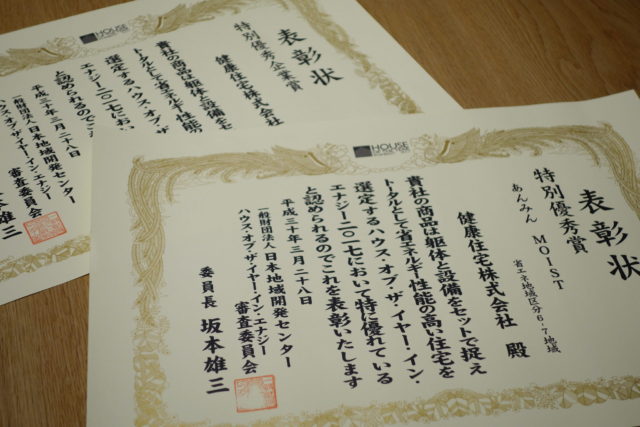 表彰状
特別優秀賞
あんみん MOIST
省エネ地域区分6・7地域
健康住宅株式会社 殿
貴社の商品は躯体と設備をセットで捉え
トータルとして省エネルギー性能の高い住宅を
選定するハウス・オブ・ザ・イヤー・イン・
エナジー二〇一七において特に優れている
と認められるのでこれを表彰いたします
平成三十年三月二十八日
一般財団法人 日本地域開発センター
ハウス・オブ・ザ・イヤー・イン・エナジー
審査委員会
委員長 坂本雄三
HOUSE
表彰状
特別優秀企業賞
健康住宅株式会社
貴社の商品は躯体と設備をセ
トータルとして省エネルギー性能の
選定するハウス・オブ・ザ・イヤ
エナジー二〇一七におい
と認められるのでこ
平成三十年三月二十八日
一般財団法人 日本地域開発センター
ハウス・オブ・ザ・イヤー・イン・エナジー
審査委員会
坂本雄三
HOUSE